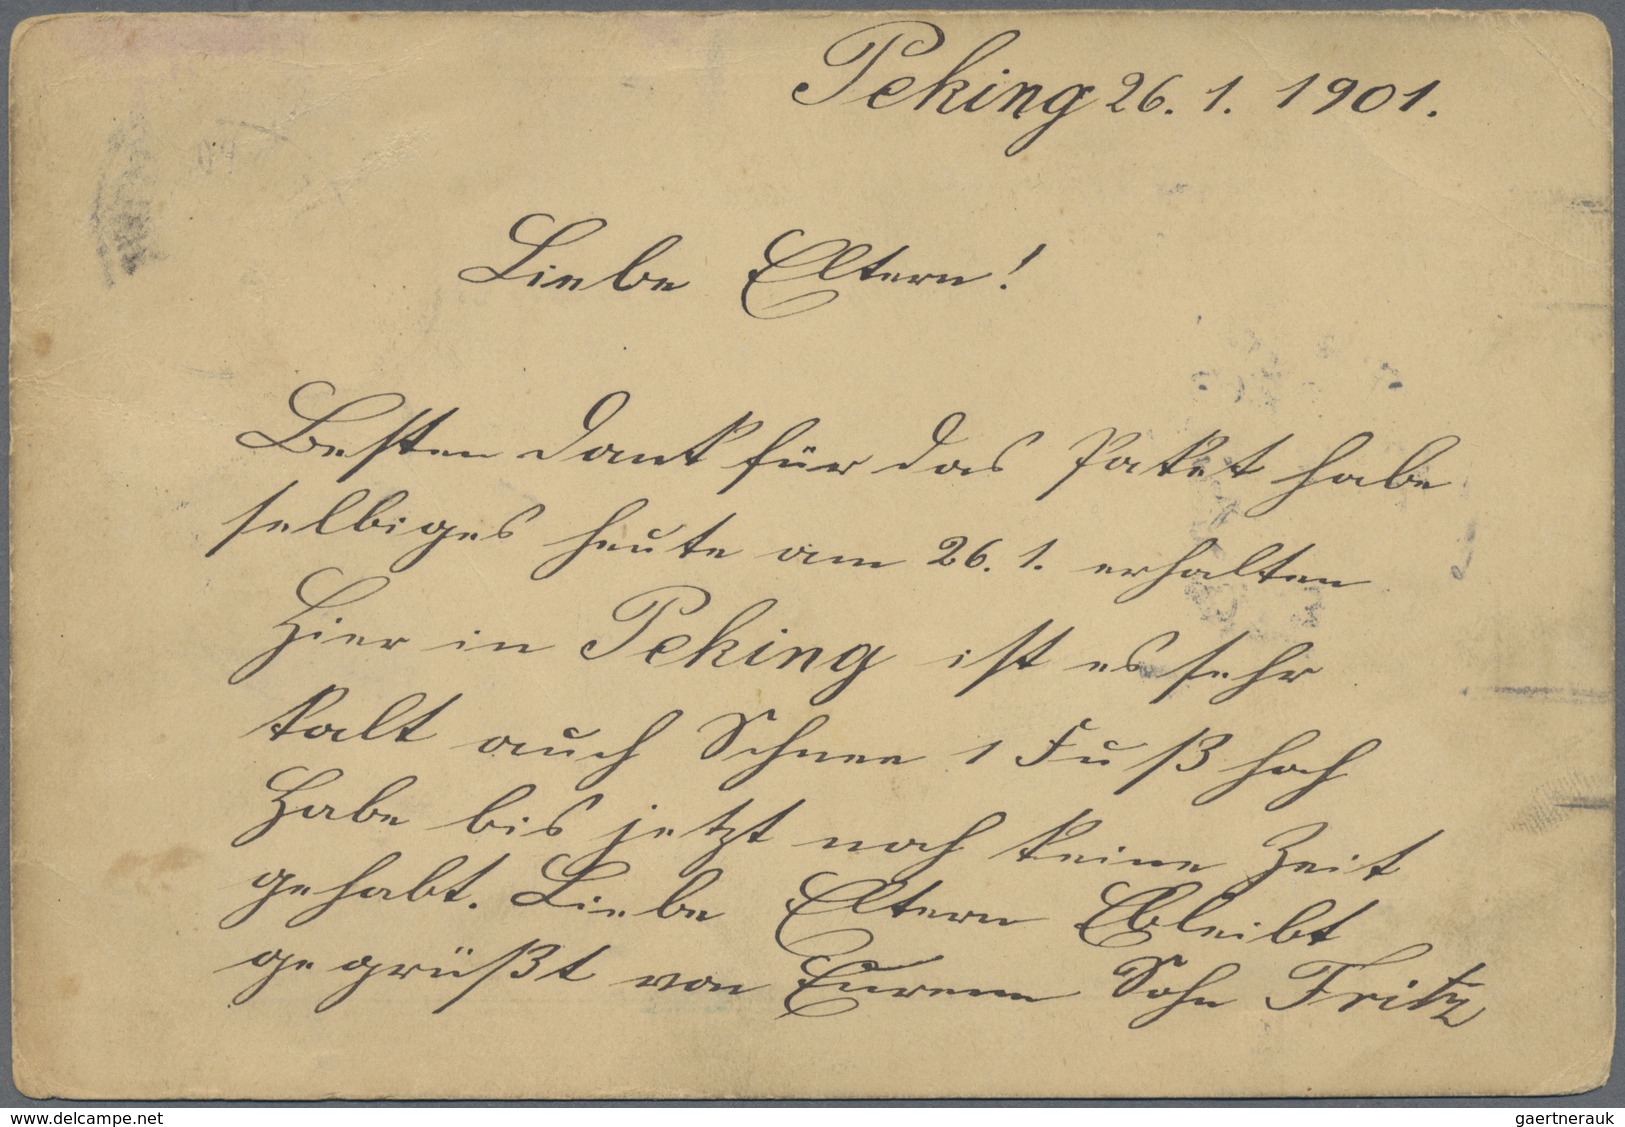 Peking 26. 1. 1901.
Liebe Eltern!
Besten Dank für das Paket habe
selbiges heute am 26. 1. erhalten
Hier in Peking ist es sehr
kalt auch Schnee 1 Fuß hoch
Habe bis jetzt noch keine Zeit
gehabt. Liebe Eltern Bleibt
gegrüßt von Eurem Sohn Fritz
www.delcampe.net
gaertnerauk